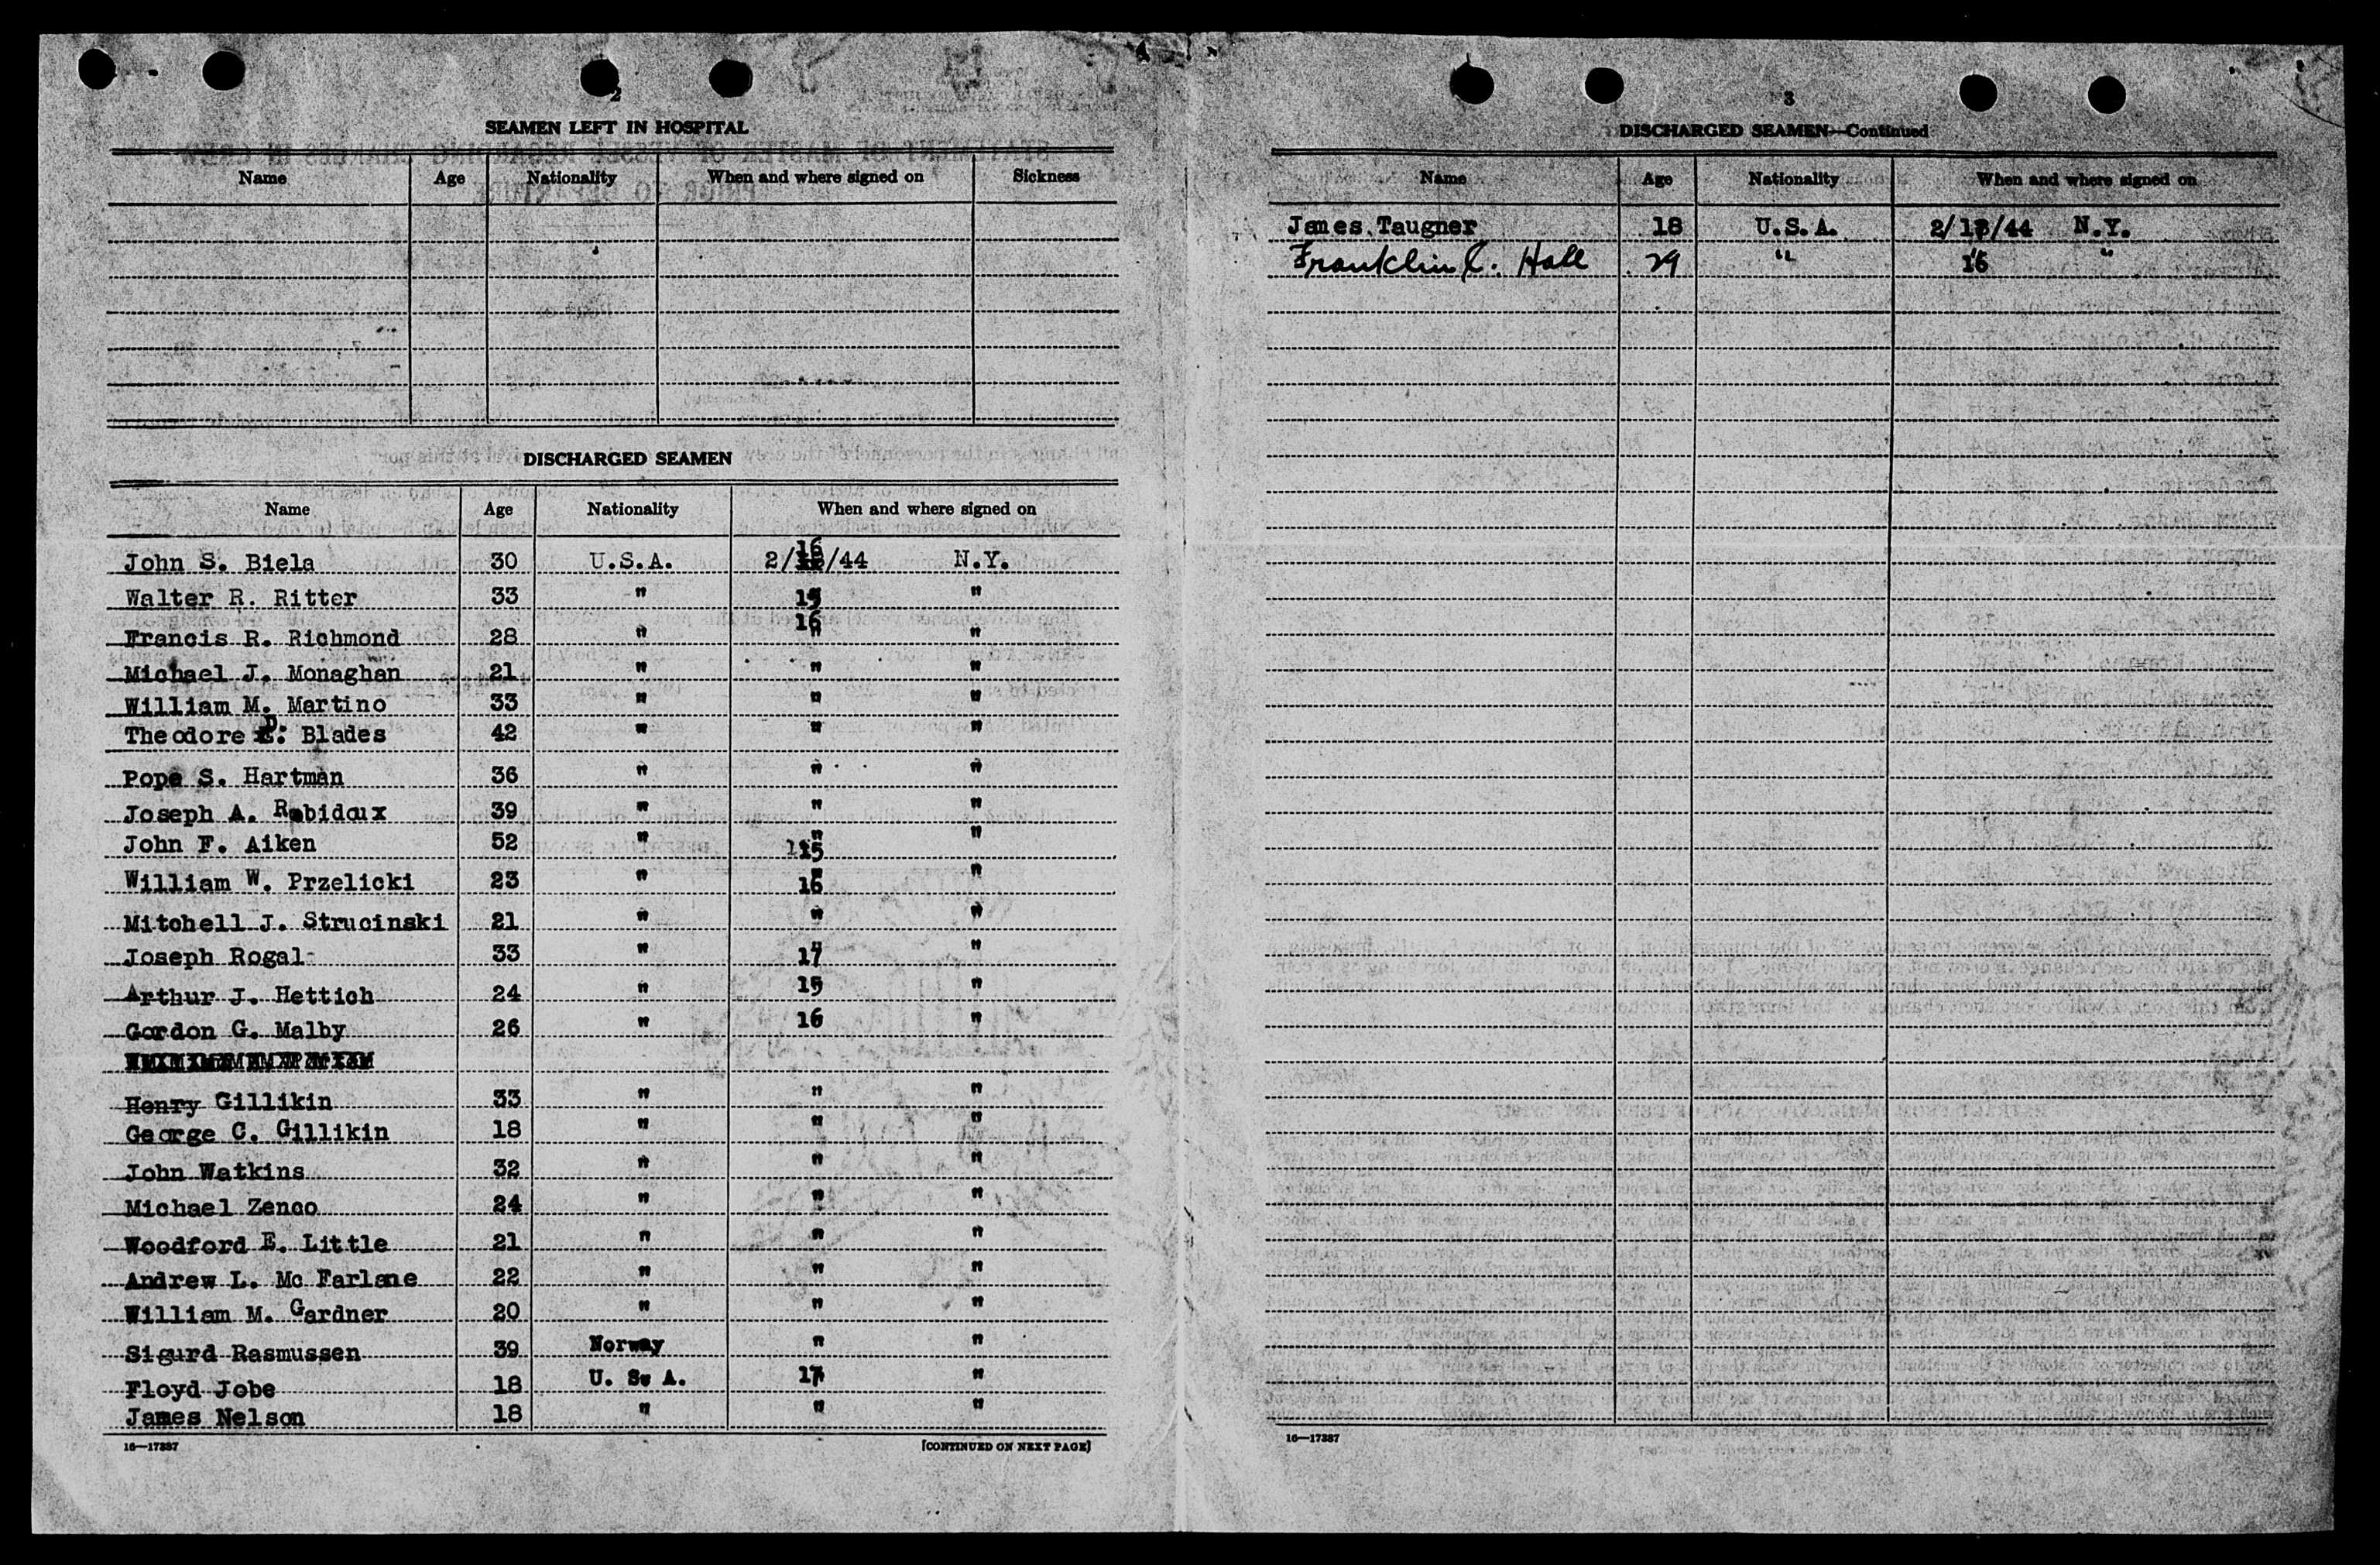 2
SEAMEN LEFT IN HOSPITAL
Name Age Nationality When and where signed on Sickness
DISCHARGED SEAMEN
Name Age Nationality When and where signed on
John S. Biela 30 U.S.A. 2/16/44 N.Y.
Walter R. Ritter 33 " 15 "
Francis R. Richmond 28 " 16 "
Michael J. Monaghan 21 " " "
William M. Martino 33 " " "
Theodore D. Blades 42 " " "
Pope S. Hartman 36 " " "
Joseph A. Robidoux 39 " " "
John F. Aiken 52 " 15 "
William W. Przelicki 23 " 16 "
Mitchell J. Strucinski 21 " " "
Joseph Rogal 33 " 17 "
Arthur J. Hettich 24 " 15 "
Gordon G. Malby 26 " 16 "
Henry Gillikin 33 " " "
George C. Gillikin 18 " " "
John Watkins 32 " " "
Michael Zenco 24 " " "
Woodford E. Little 21 " " "
Andrew L. Mc Farlane 22 " " "
William M. Gardner 20 " " "
Sigurd Rasmussen 39 Norway " "
Floyd Jobe 18 U. S. A. 17 "
James Nelson 18 " " "
16—17337 [CONTINUED ON NEXT PAGE]
3
DISCHARGED SEAMEN—Continued
Name Age Nationality When and where signed on
James Taugner 18 U.S.A. 2/17/44 N.Y.
Franklin C. Hall 29 " 16 "
16—17337